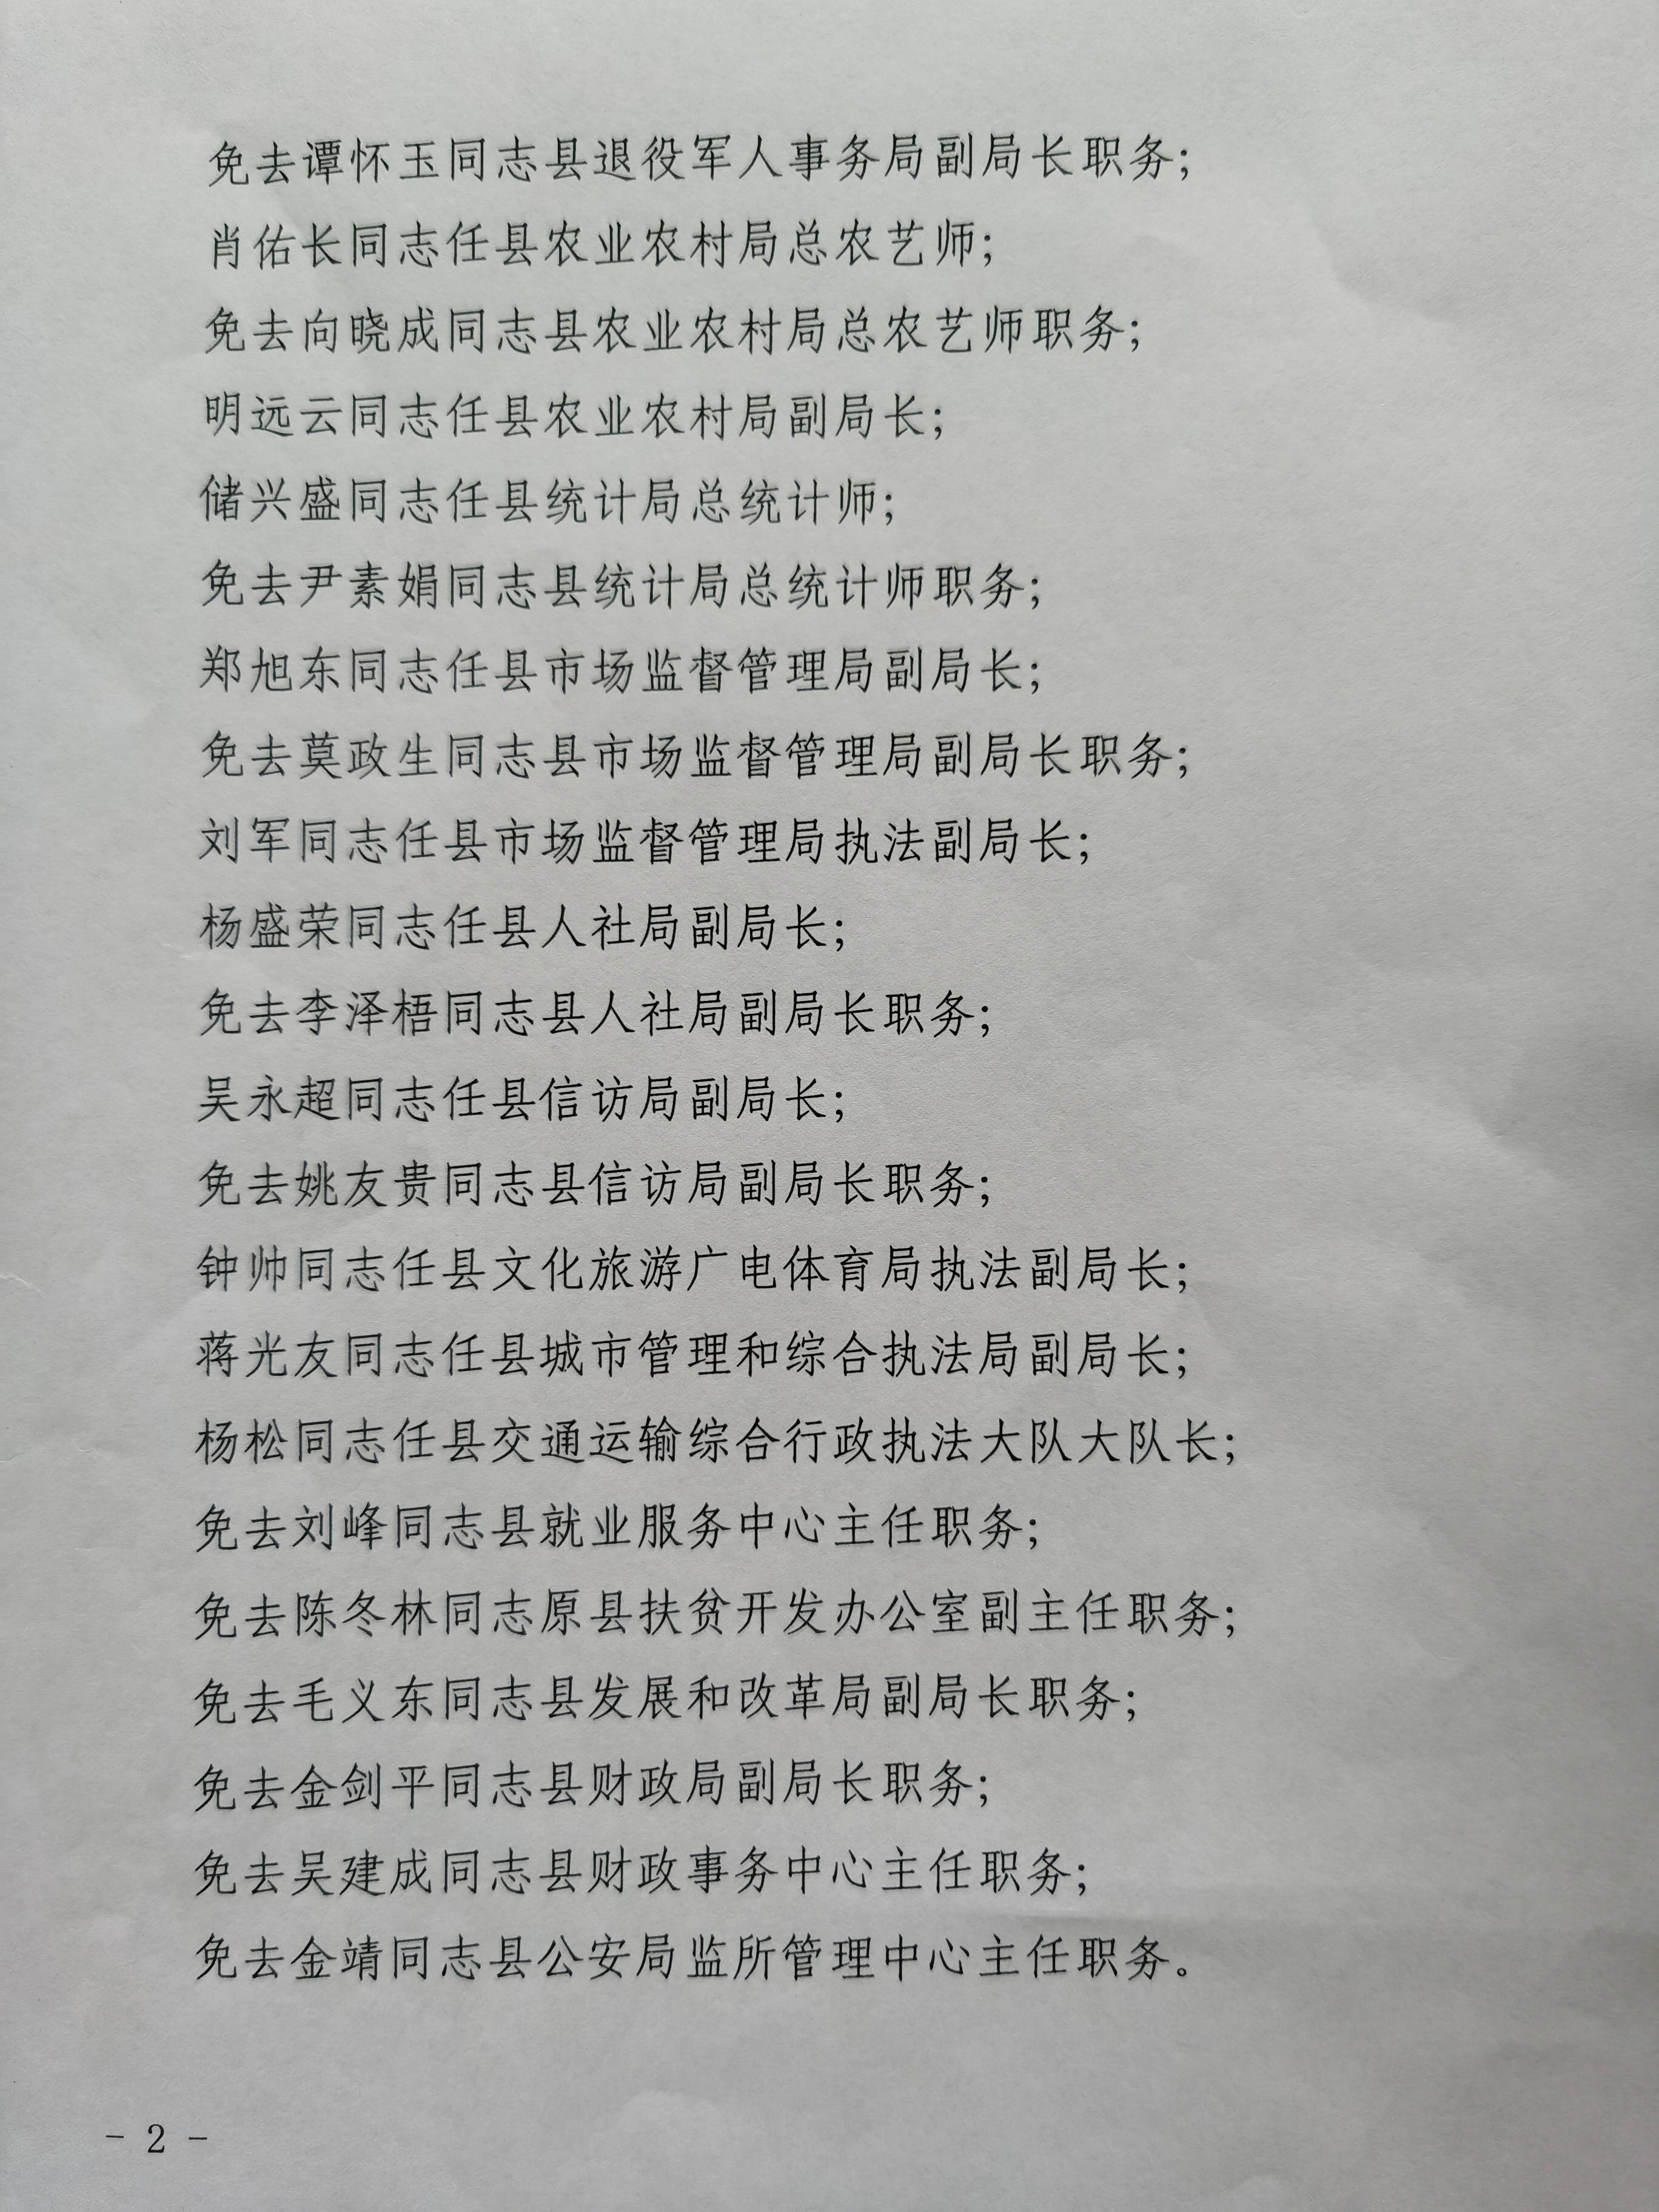 免去谭怀玉同志县退役军人事务局副局长职务；
肖佑长同志任县农业农村局总农艺师；
免去向晓成同志县农业农村局总农艺师职务；
明远云同志任县农业农村局副局长；
储兴盛同志任县统计局总统计师；
免去尹素娟同志县统计局总统计师职务；
郑旭东同志任县市场监督管理局副局长；
免去莫政生同志县市场监督管理局副局长职务；
刘军同志任县市场监督管理局执法副局长；
杨盛荣同志任县人社局副局长；
免去李泽梧同志县人社局副局长职务；
吴永超同志任县信访局副局长；
免去姚友贵同志县信访局副局长职务；
钟帅同志任县文化旅游广电体育局执法副局长；
蒋光友同志任县城市管理和综合执法局副局长；
杨松同志任县交通运输综合行政执法大队大队长；
免去刘峰同志县就业服务中心主任职务；
免去陈冬林同志原县扶贫开发办公室副主任职务；
免去毛义东同志县发展和改革局副局长职务；
免去金剑平同志县财政局副局长职务；
免去吴建成同志县财政事务中心主任职务；
免去金靖同志县公安局监所管理中心主任职务。
- 2 -